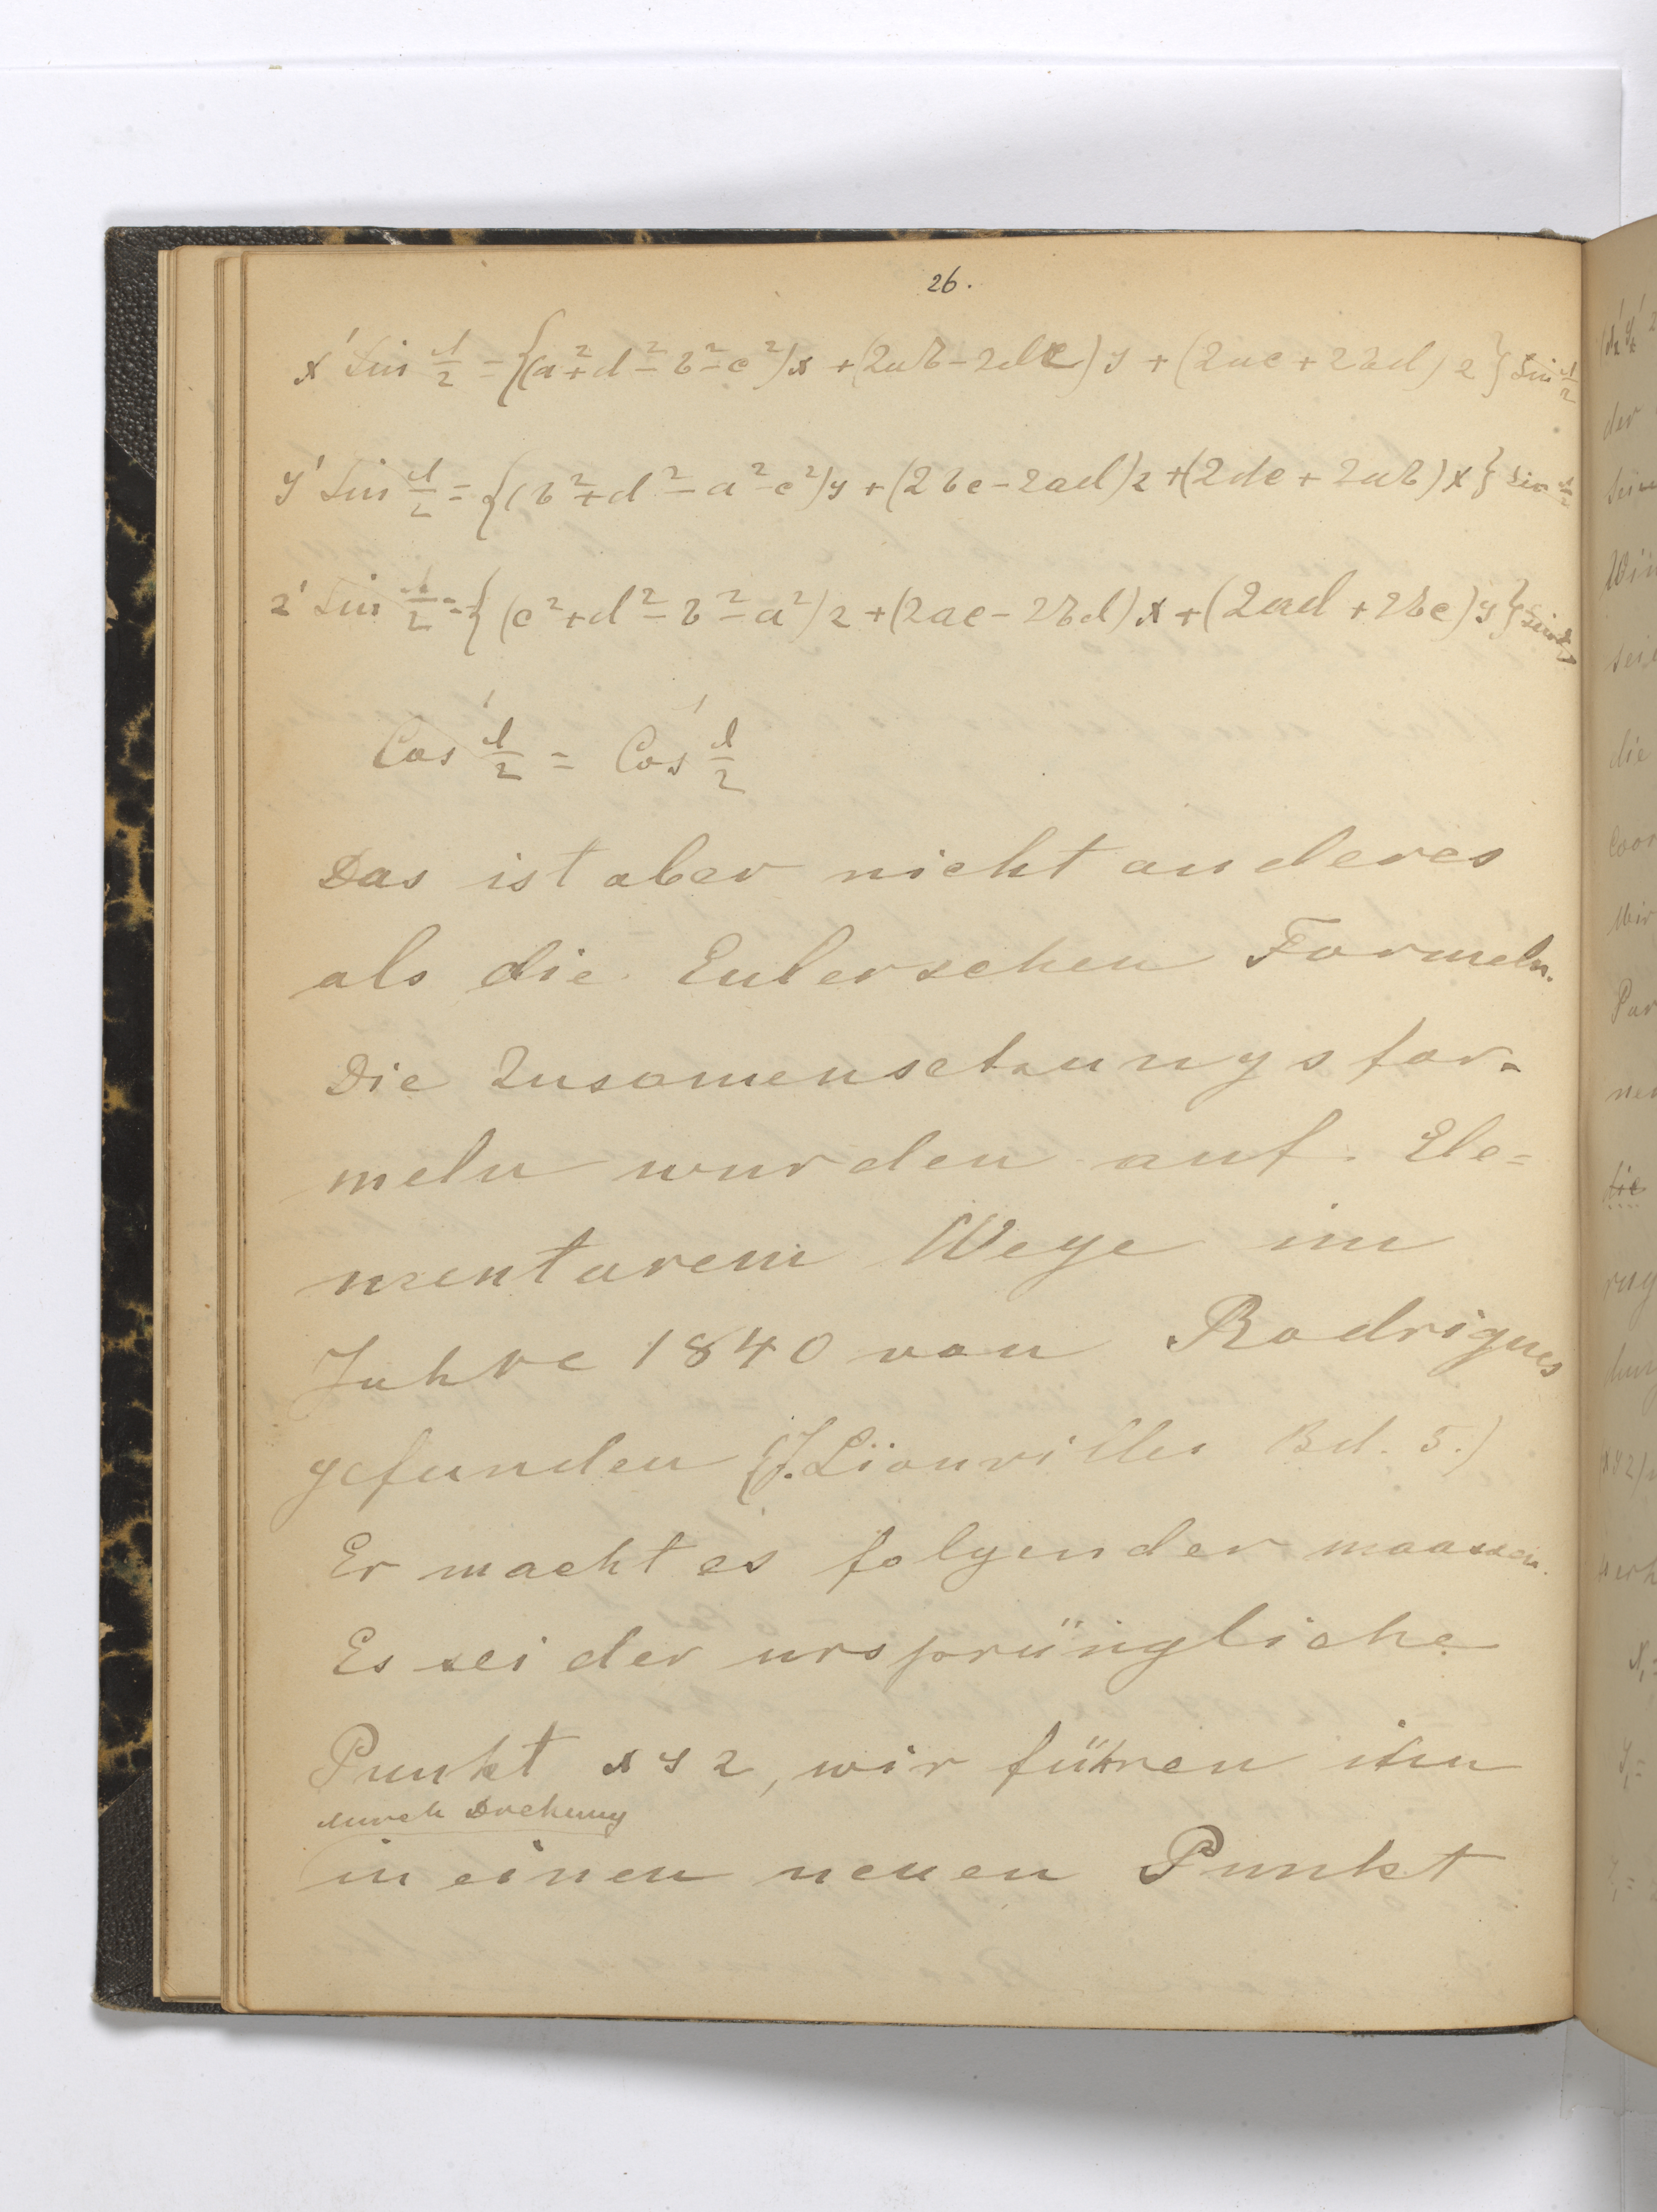 26.
x' Sin d/2 = {(a²+d²-b²-c²)x + (2ab-2dc)y + (2ac+2bd)z} Sin d/2
y' Sin d/2 = {(b²+d²-a²-c²)y + (2bc-2ad)z + (2dc+2ab)x} Sin d/2
z' Sin d/2 = {(c²+d²-b²-a²)z + (2ac-2bd)x + (2ad+2bc)y} Sin d/2
Cos d'/2 = Cos d'/2
Das ist aber nicht anderes
als die Eulerschen Formeln.
Die Zusamensetzungsfor-
meln wurden auf Ele=
mentarem Wege im
Jahre 1840 von Rodrigues
gefunden (J. Liouvilles Bd. 5.)
Er macht es folgender maassen.
Es sei der ursprüngliche
Punkt x y z, wir führen ihn
durch Drehung
in einen neuen Punkt